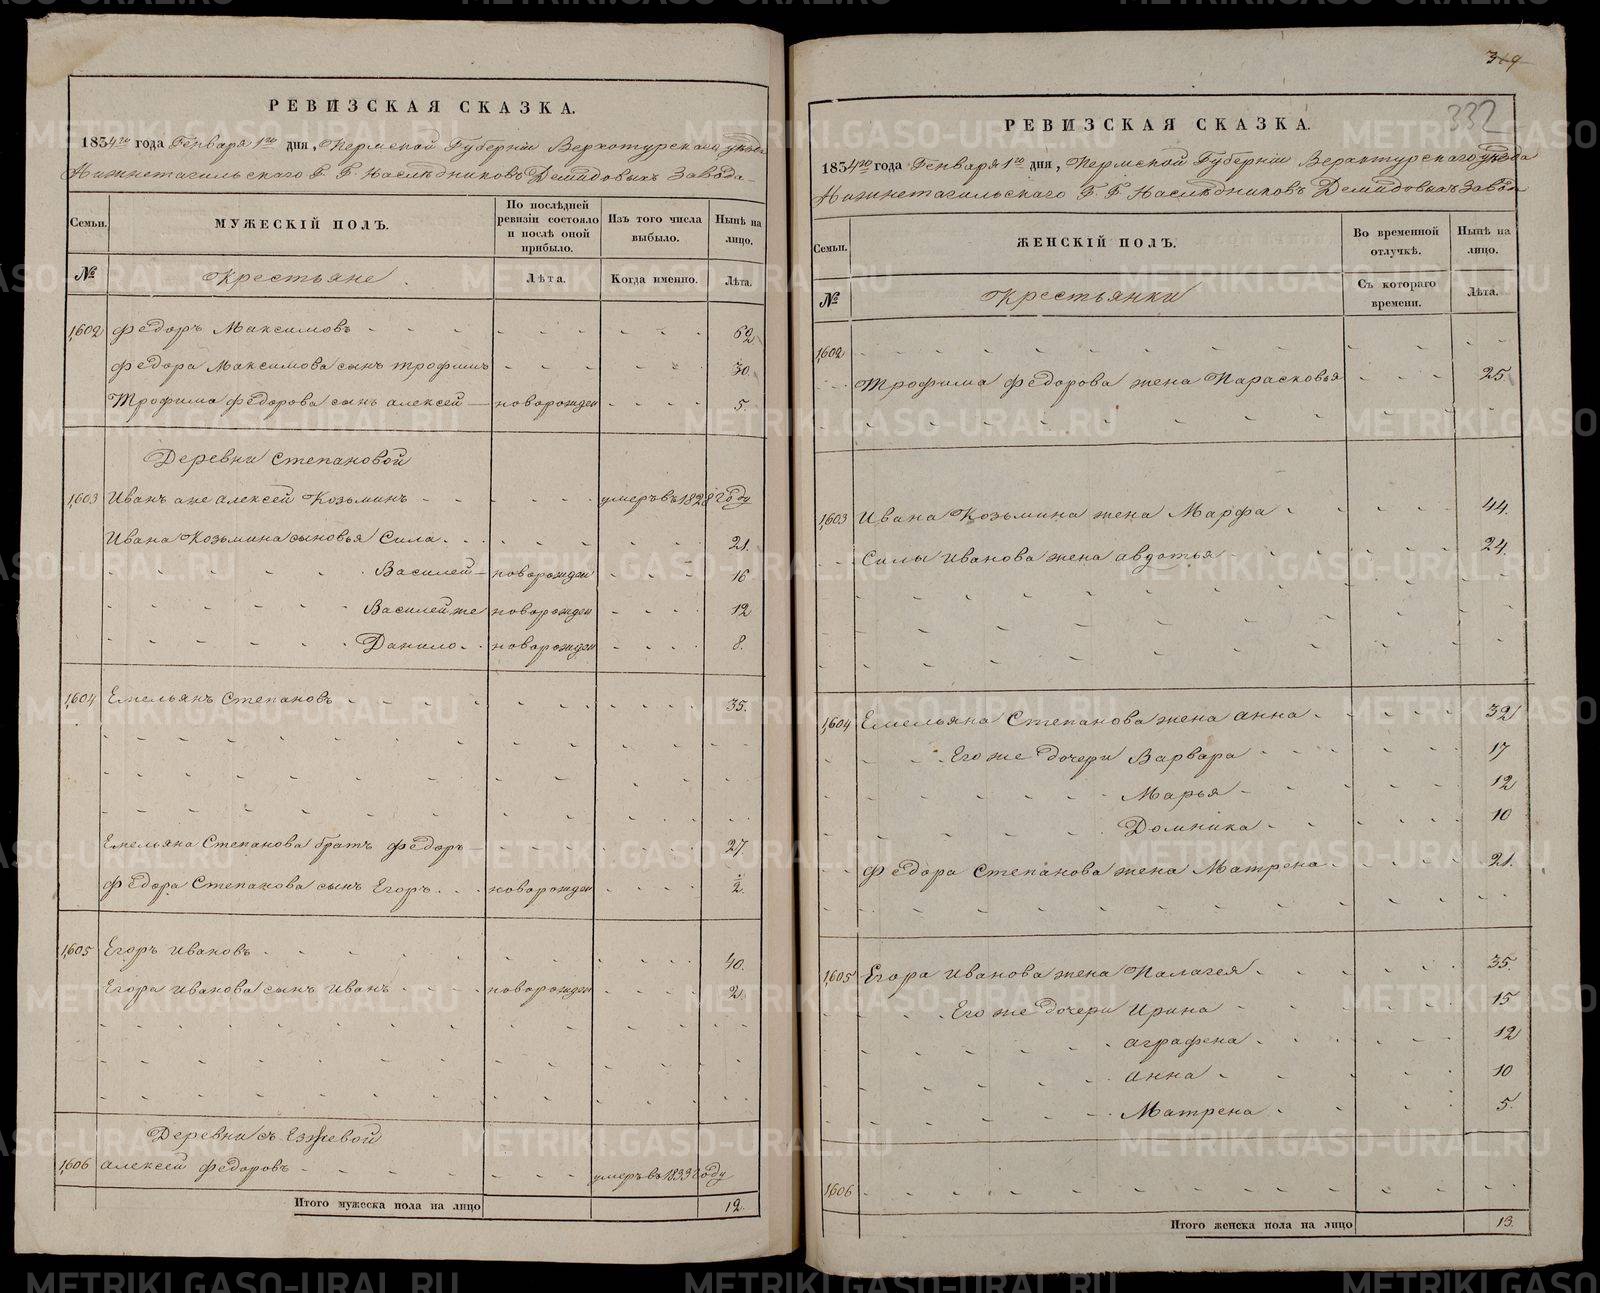 РЕВИЗСКАЯ СКАЗКА.
1834го года Генваря 1го дня, Пермской Губернiи Верхотурскаго уезда
Нижнетагильскаго Г. Г. Наследниковъ Демидовыхъ Завода
Семьи.
МУЖЕСКIЙ ПОЛЪ.
По послѣдней ревизiи состояло и послѣ оной прибыло.
Изъ того числа выбыло.
Нынѣ на лицо.
№
Крестьяне
Лѣта.
Когда именно.
Лѣта.
1,602 Федоръ Максимовъ 62
Федора Максимова сынъ трофимъ 30.
Трофима Федорова сынъ алексей новорожден 5.
Деревни Степановой
1,603 Иванъ ане алексей Козьминъ умеръ въ 1828 году
Ивана Козьмина сыновья Сила 21.
Василей новорожден 16
Василей же новорожден 12
Данило новорожден 8.
1,604 Емельянъ Степановъ 35.
Емельяна Степанова братъ Федоръ 27.
Федора Степанова сынъ Егоръ новорожден 1/2.
1,605 Егоръ Ивановъ 40.
Егора Иванова сынъ Иванъ новорожден 2
Деревни
1,606 алексей Федоровъ умеръ въ 1833 году
Итого мужеска пола на лицо 12.
319
332
РЕВИЗСКАЯ СКАЗКА.
1834го года Генваря 1го дня, Пермской Губернiи Верхотурскаго уезда
Нижнетагильскаго Г. Г. Наследниковъ Демидовыхъ Завода
Семьи.
ЖЕНСКIЙ ПОЛЪ.
Во временной отлучкѣ.
Нынѣ на лицо.
№
Крестьянки
Съ котораго времени.
Лѣта.
1,602
Трофима Федорова жена Парасковья 25
1,603 Ивана Козьмина жена Марфа 44.
Силы Иванова жена авдотья 24.
1,604 Емельяна Степанова жена анна 32
Его же дочери Варвара 17
Марья 12
Домника 10
Федора Степанова жена Матрена 21.
1,605 Егора Иванова жена Палагея 35.
Его же дочери Ирина 15
аграфена 12
анна 10
Матрена 5.
1606
Итого женска пола на лицо 13.
METRIKI.GASO-URAL.RU